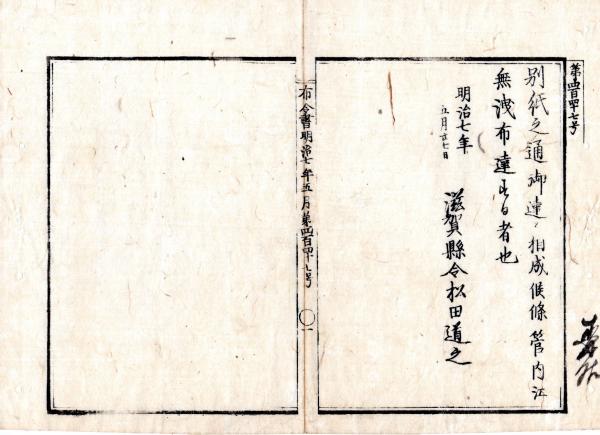 第四百四十七号
別紙之通御達ノ相成候條管内江
無洩布達
者也
明治七年
五月廿七日
滋賀縣令松田道之
布令書明治七年五月第四百四十七号